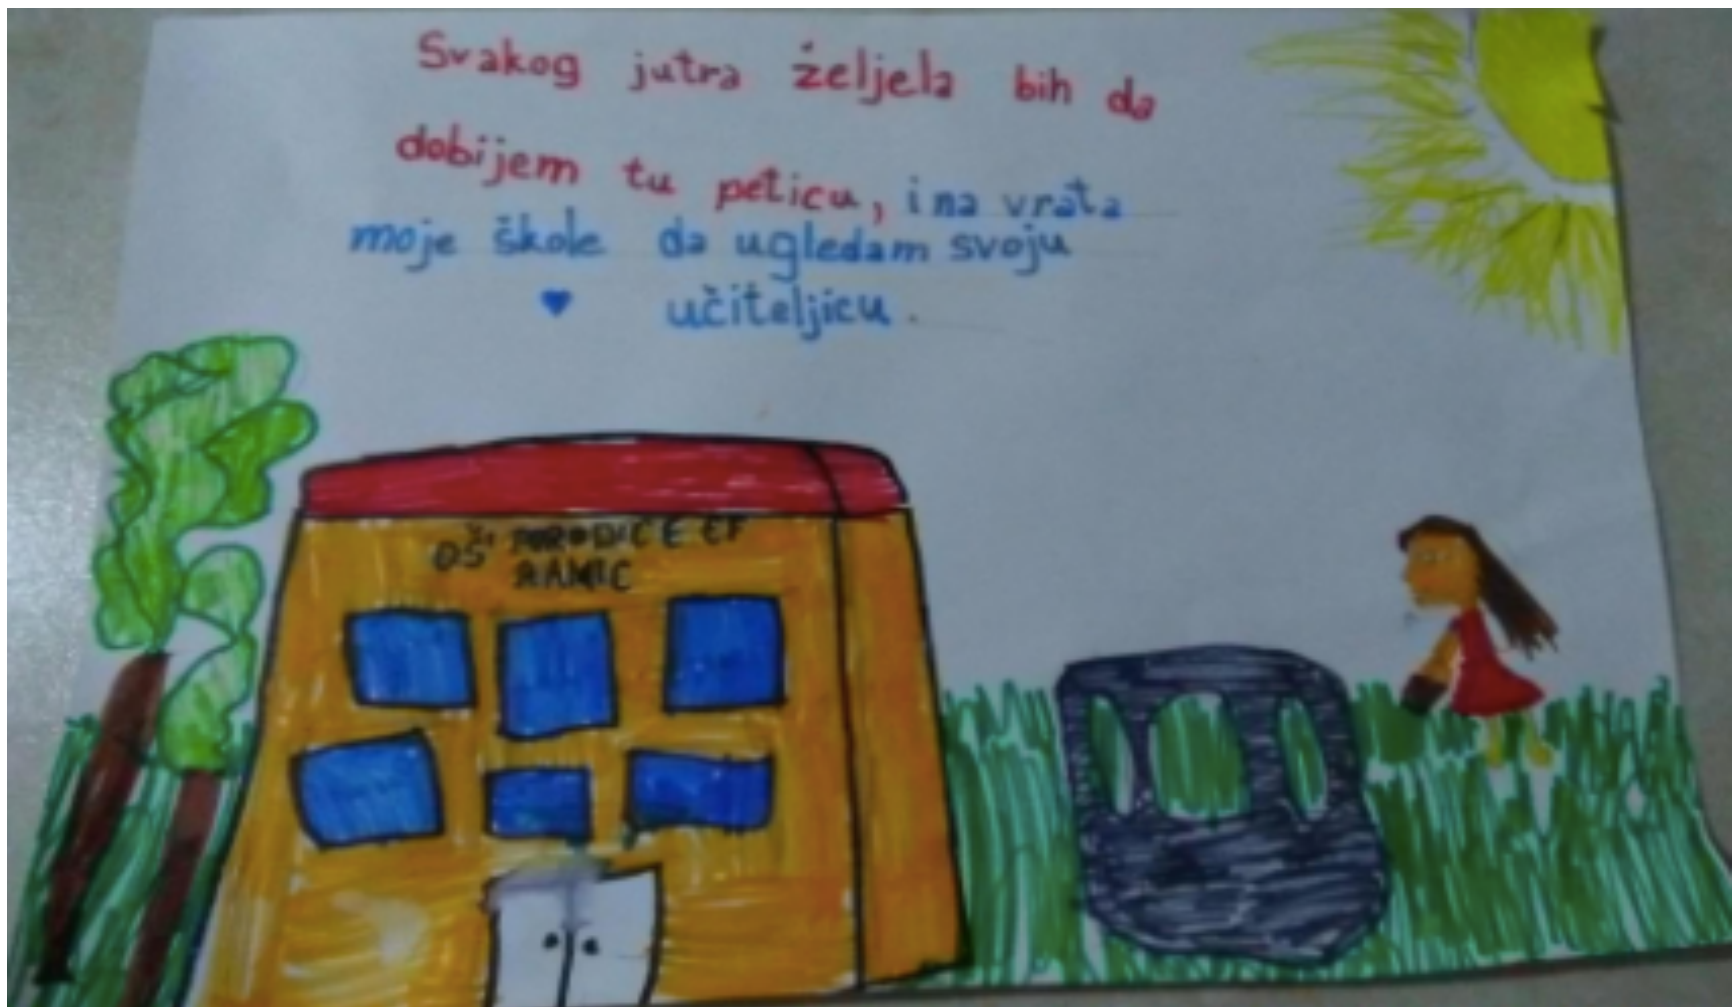 Svakog jutra željela bih da
dobijem tu peticu, i na vrata
moje škole da ugledam svoju
učiteljicu.
OŠ PORODICE EF
RAMIĆ